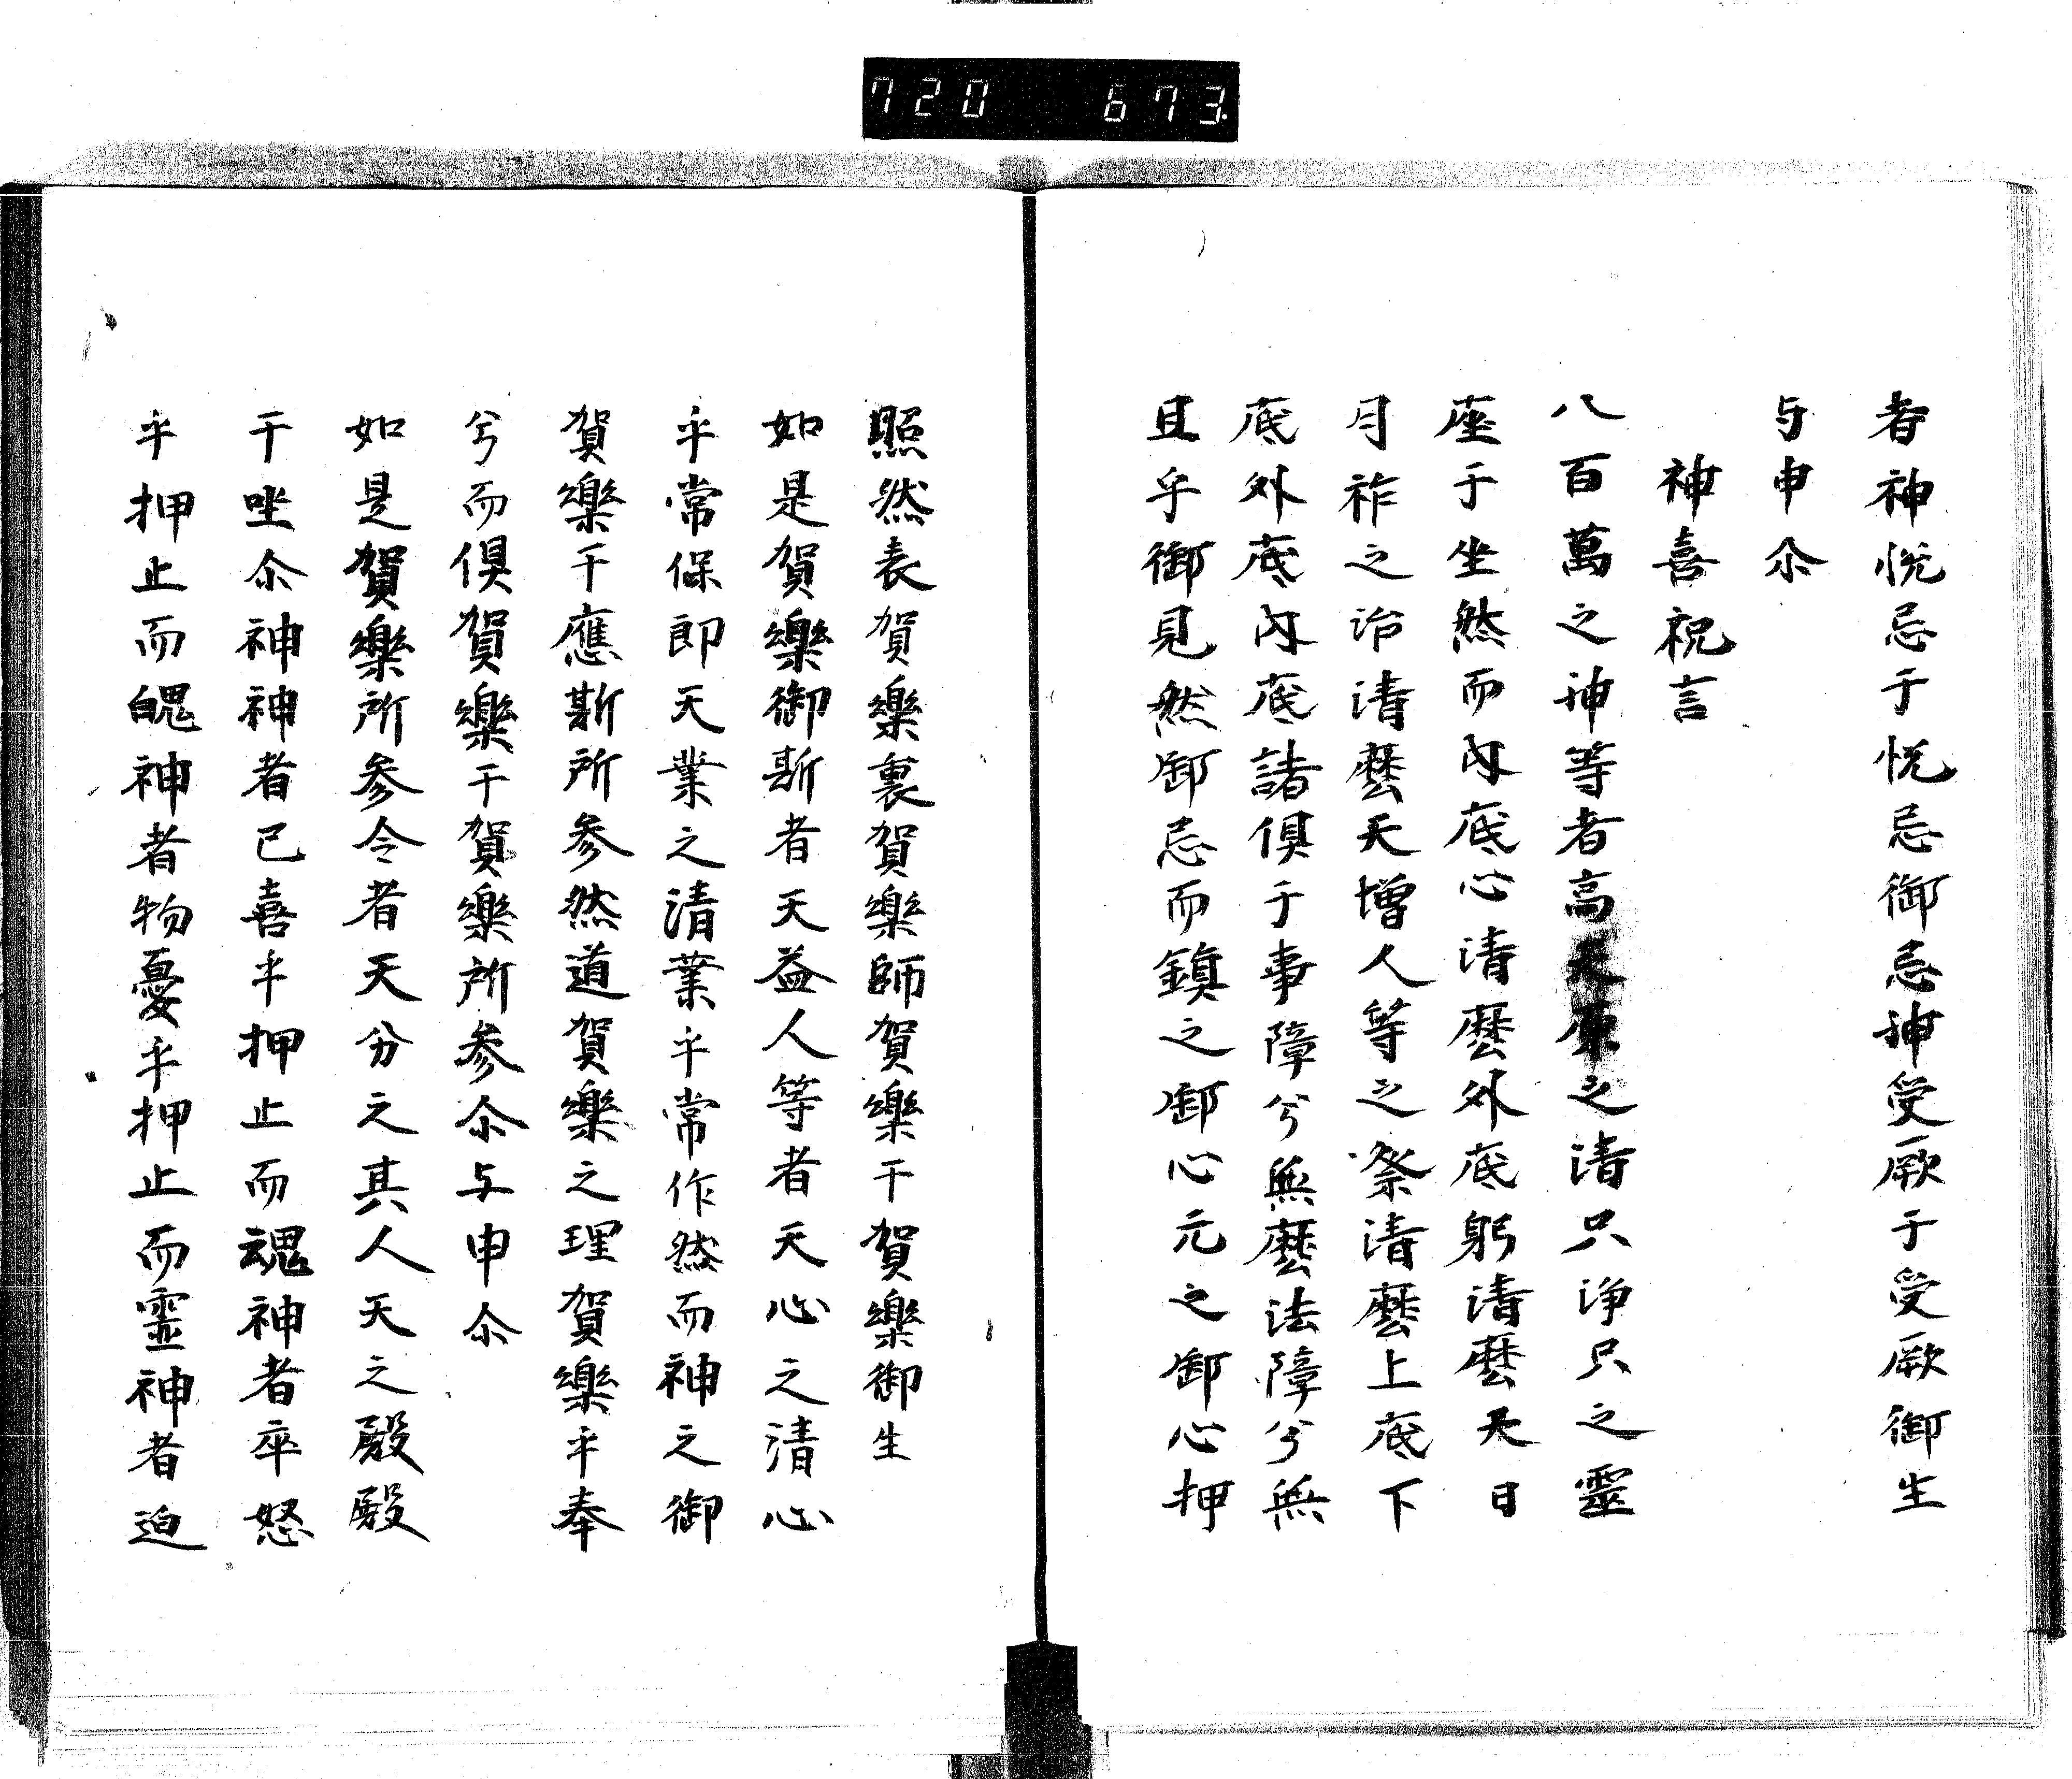 720 673
者神悦忌于悦忌御忌神受厥于受厥御生
与申尒
神喜祝言
八百萬之神等者高天原之清只浄只之靈
座于坐然而内底心清麼外底躬清麼天日
月祚之治清麼天增人等之祭清麼上底下
底外底内底諸俱于事障兮無麼法障兮無
且乎御見然御忌而鎮之御心元之御心押
照然表賀樂裏賀樂師賀樂干賀樂御生
如是賀樂御斯者天益人等者天心之清心
乎常保即天業之清業乎常作然而神之御
賀樂干應斯所参然道賀樂之理賀樂乎奉
兮而俱賀樂干賀樂所参尒与申尒
如是賀樂所参令者天分之其人天之殿殿
干坐尒神神者已喜乎押止而魂神者卒怒
乎押止而魄神者物憂乎押止而靈神者迫